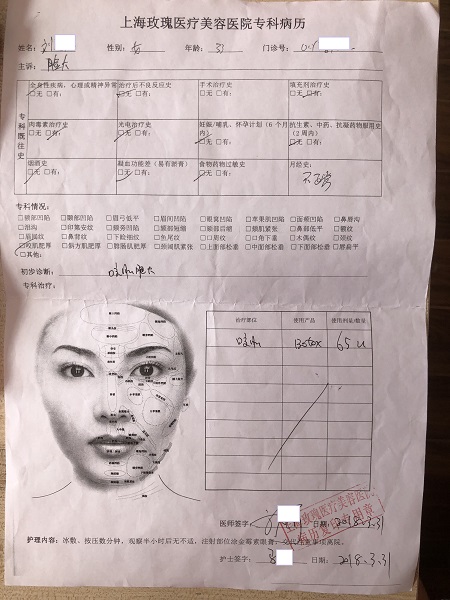 上海玫瑰医疗美容医院专科病历
姓名: 刘 性别: 女 年龄: 31 门诊号:
主诉: 脸大
专科既往史
全身性疾病，心理或精神异常 □无 □有: 治疗后不良反应史 □无 □有: 手术治疗史 □无 □有: 填充剂治疗史 □无 □有:
肉毒素治疗史 □无 □有: 光电治疗史 □无 □有: 妊娠/哺乳、怀孕计划（6个月内）□无 □有: 抗生素、中药、抗凝药物服用史（2周内）□无 □有:
烟酒史 □无 □有: 凝血功能差（易有淤青）□无 □有: 食物药物过敏史 □无 □有: 月经史:
专科情况:
□额部凹陷 □颞部凹陷 □眉弓低平 □眉间凹陷 □眼窝凹陷 □苹果肌凹陷 □面颊凹陷 □鼻唇沟
□泪沟 □印第安纹 □颏部短缩 □颏部后缩 □颏肌紧张 □鼻部低平 □额纹
□眉间纹 □鼻背纹 □下睑细纹 □鱼尾纹 □口周纹 □口角下垂 □木偶纹 □颈纹
□咬肌肥厚 □斜方肌肥厚 □腓肠肌肥厚 □颈阔肌紧张 □上面部松垂 □中面部松垂 □下面部松垂 □唇扁平
□其他:
初步诊断: 咬肌肥大
专科治疗:
治疗部位 使用产品 使用剂量/数量
咬肌 Botox 65u
医师签字: 日期: 2018.3.31
护理内容: 冰敷、按压数分钟，观察半小时后无不适，注射部位涂金霉素眼膏，交代注意事项离院。
护士签字: 日期: 2018.3.31